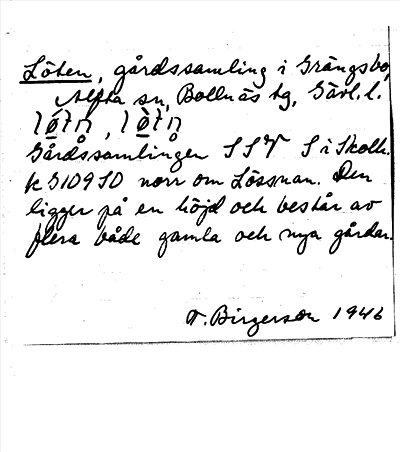 Löten, gårdssamling i Grängsbo,
Alfta sn, Bollnäs tg, Gävl. l.
Gårdssamlingen SSV S i Skolh.
k 3109 SO norr om Lössnan. Den
ligger på en höjd och består av
flera både gamla och nya gårdar.
T. Birgerson 1946